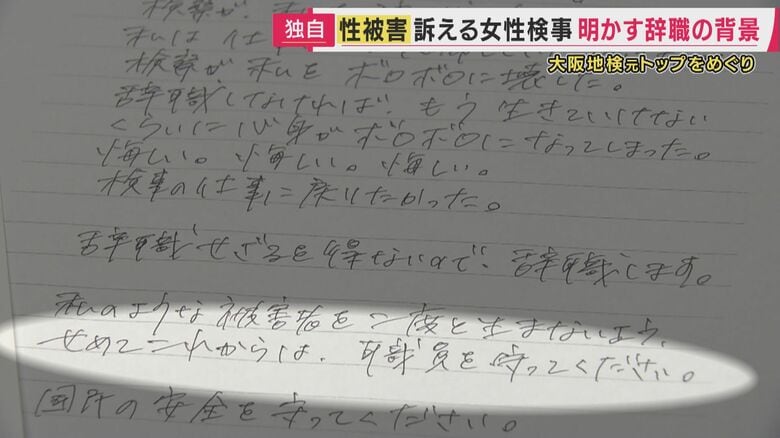 独自 性被害 訴える女性検事 明かす辞職の背景
大阪地検元トップをめぐり
検察が
私は仕
検察が私をボロボロに壊した。
辞職しなければ、もう生きていけない
くらいに心身がボロボロになってしまった。
悔しい。悔しい。悔しい。
検事の仕事に戻りたかった。
辞職せざるを得ないので、辞職します。
私のような被害者を二度と生まないよう、
せめてこれからは、職員を守ってください。
国民の安全を守ってください。